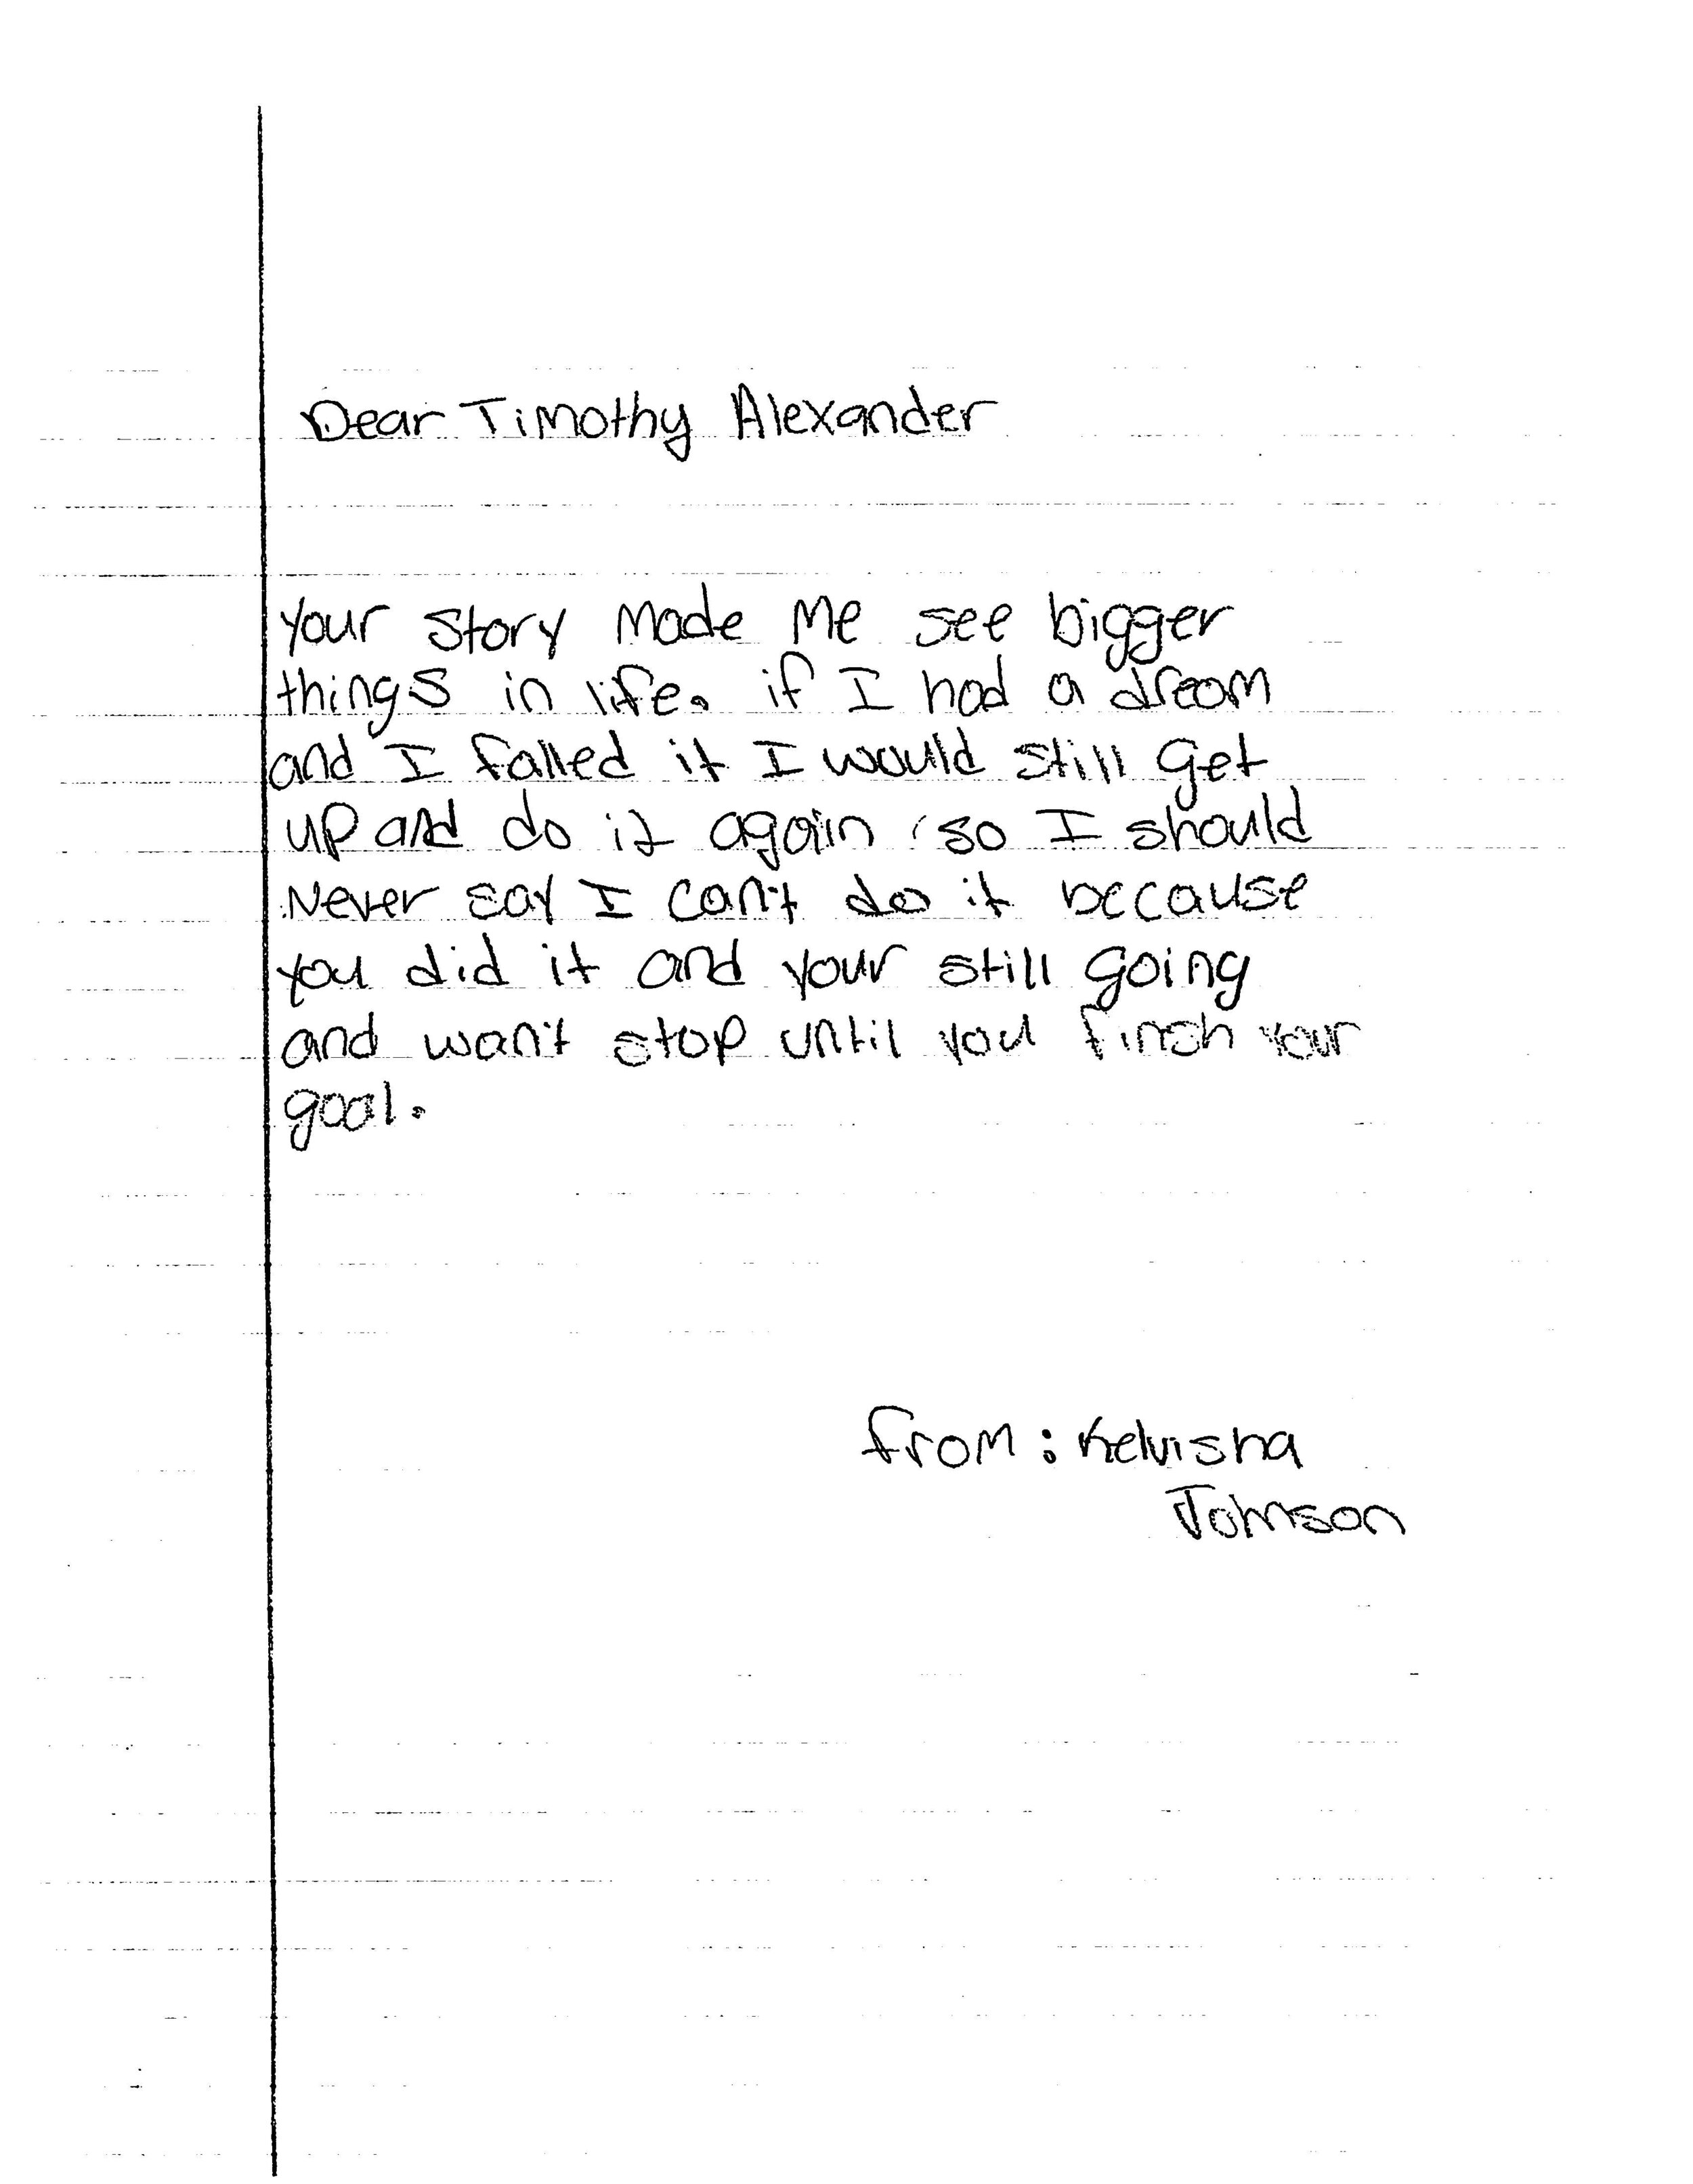 Dear Timothy Alexander
Your story made me see bigger
things in life. if I had a dream
and I failed it I would still get
up and do it again so I should
Never say I can't do it because
you did it and your still going
and wan't stop until you finsh your
goal.
from: Kelvisha
Johnson